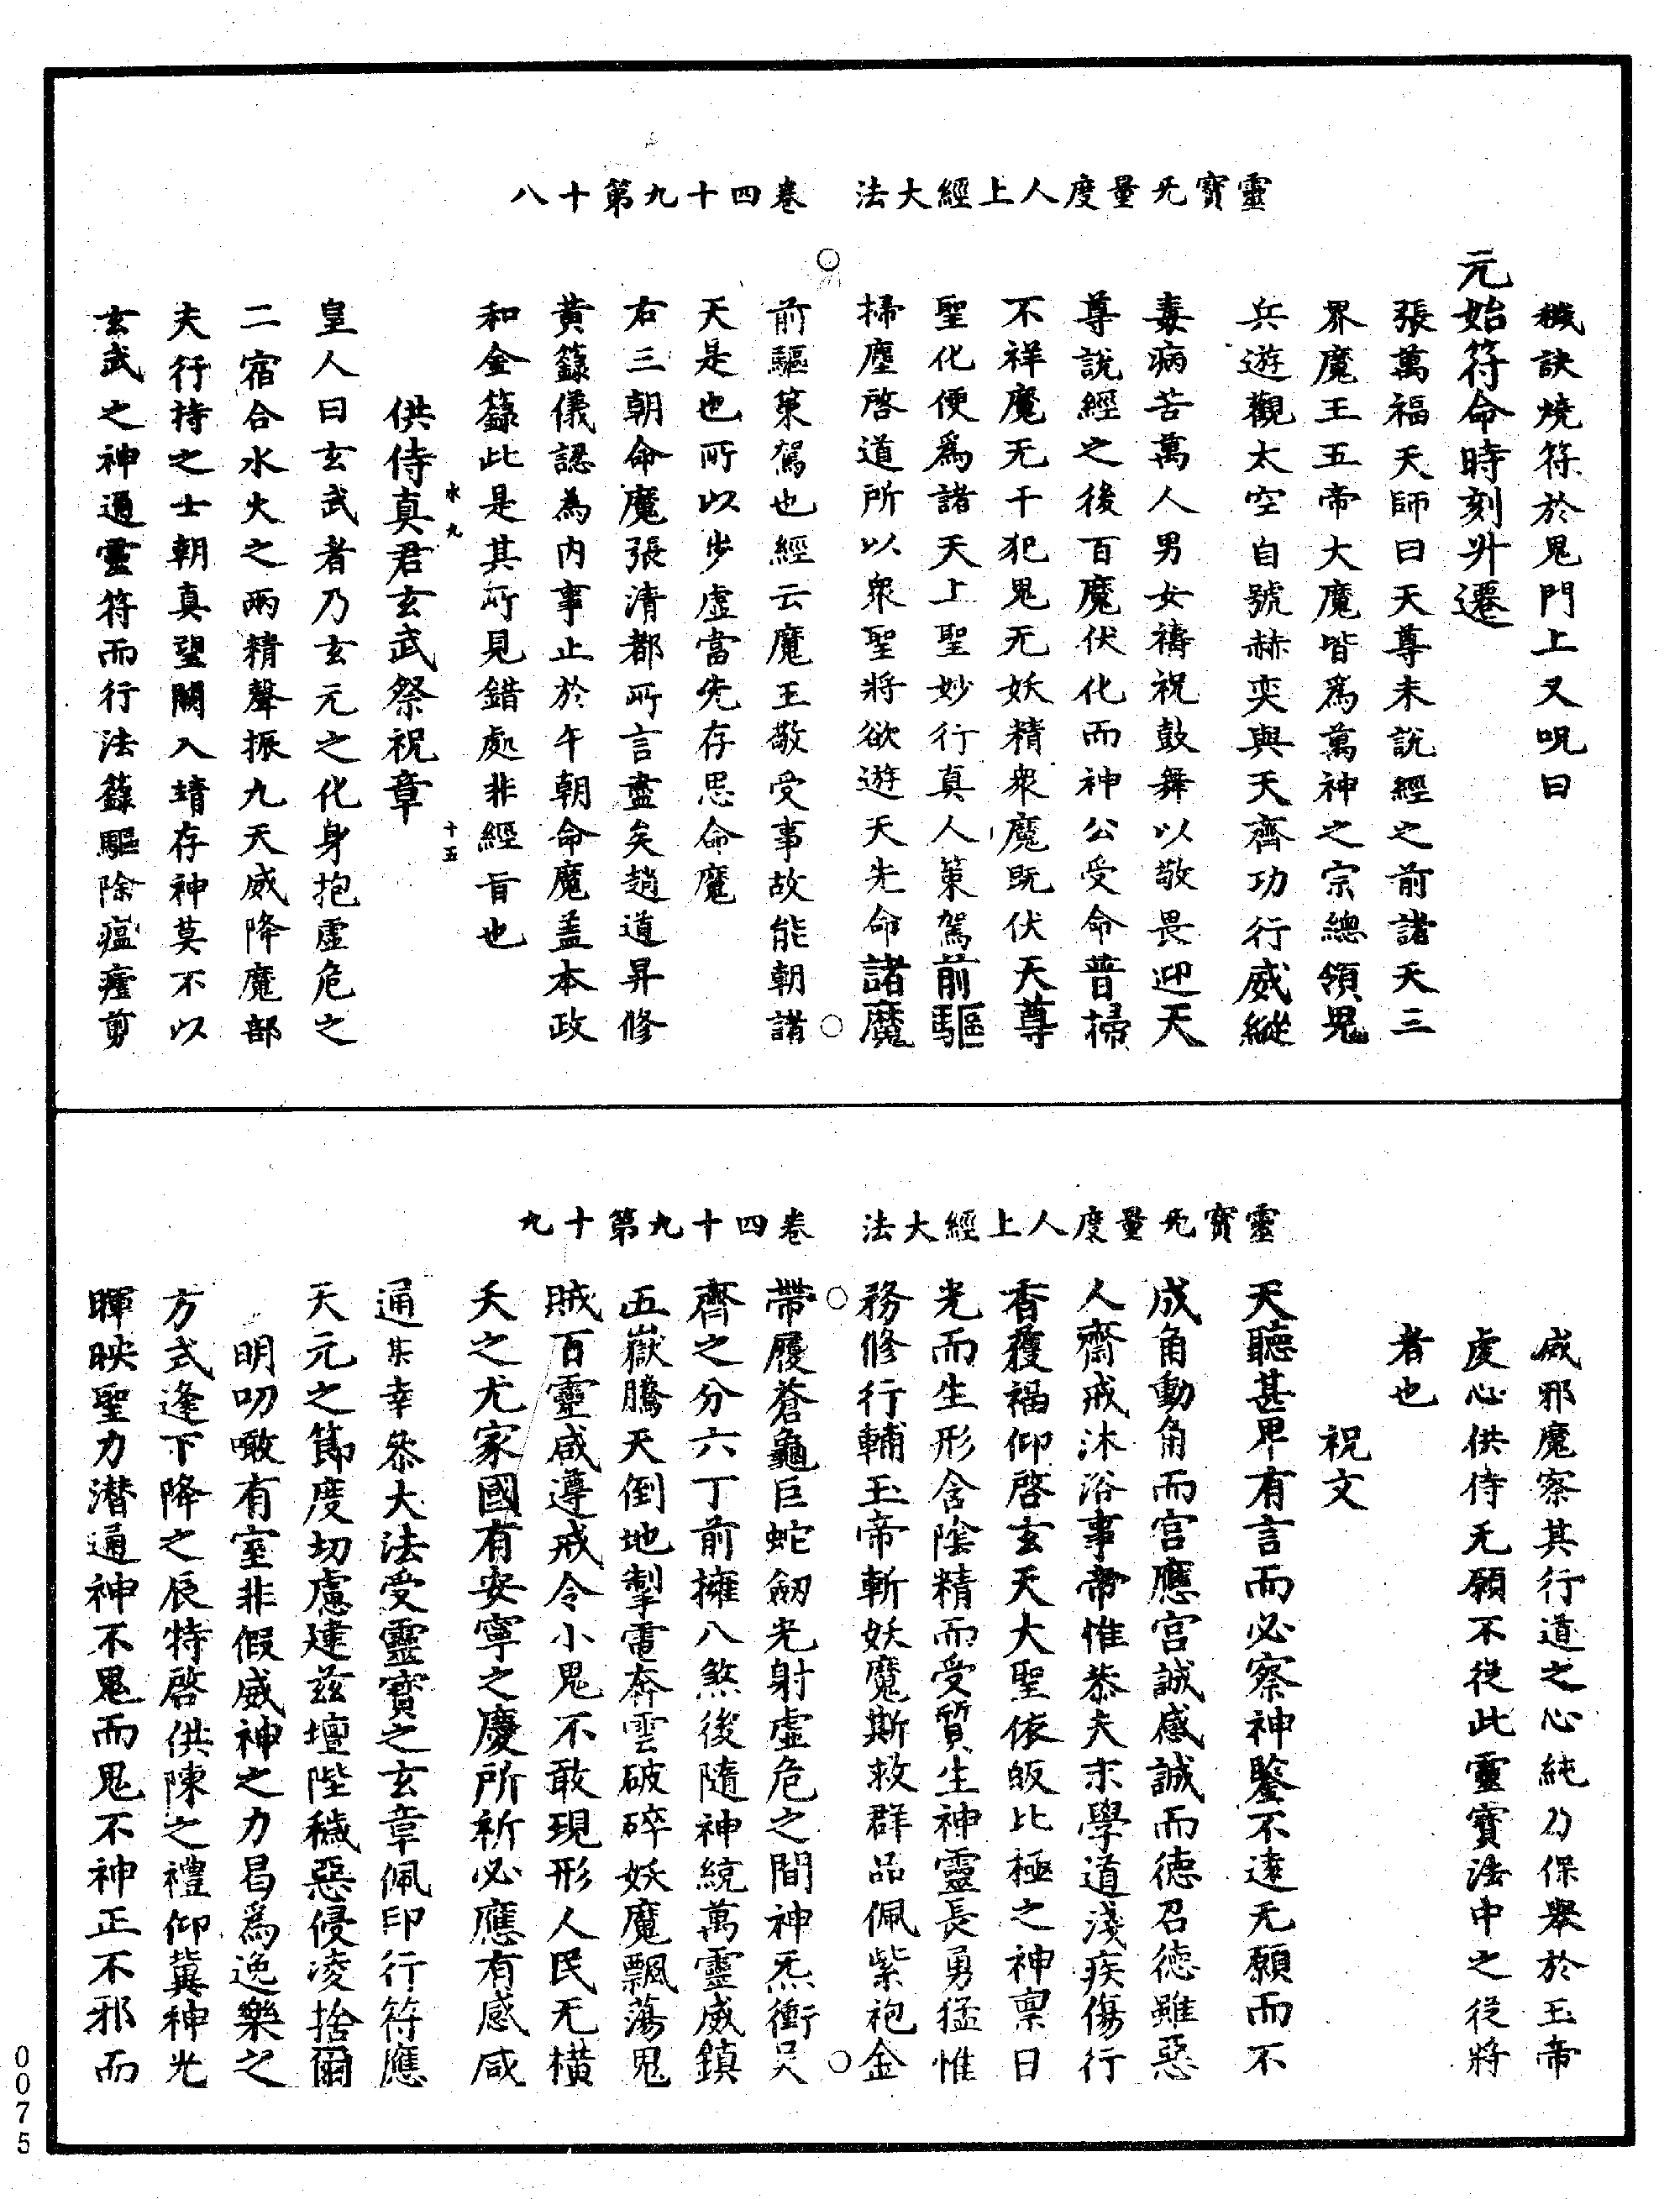 靈寶无量度人上經大法　卷四十九第十八
機訣燒符於鬼門上又呪曰
元始符命時刻升遷
張萬福天師曰天尊未說經之前諸天三
界魔王五帝大魔皆爲萬神之宗總領鬼
兵遊觀太空自號赫奕與天齊功行威縱
毒病苦萬人男女禱祝鼓舞以敬畏迎天
尊說經之後百魔伏化而神公受命普掃
不祥魔无干犯鬼无妖精衆魔既伏天尊
聖化便爲諸天上聖妙行真人策駕前驅
掃塵啓道所以衆聖將欲遊天先命諸魔
前驅策駕也經云魔王敬受事故能朝諸
天是也所以步虛當先存思命魔
右三朝命魔張清都所言盡矣趙道昇修
黃籙儀認為內事止於午朝命魔盖本政
和金籙此是其所見錯處非經旨也
供侍真君玄武祭祝章
水九　十五
皇人曰玄武者乃玄元之化身抱虛危之
二宿合水火之兩精聲振九天威降魔部
夫行持之士朝真望闕入靖存神莫不以
玄武之神通靈符而行法籙驅除瘟疫剪
靈寶无量度人上經大法　卷四十九第十九
滅邪魔察其行道之心純乃保舉於玉帝
虔心供侍无願不從此靈寶法中之從將
者也
祝文
天聽甚卑有言而必察神鑒不遠无願而不
成角動角而宮應宮誠感誠而德召德雖惡
人齋戒沐浴事帝惟恭夫末學道淺疾傷行
香獲福仰啓玄天大聖依皈北極之神禀日
光而生形含陰精而受質生神靈長勇猛惟
務修行輔玉帝斬妖魔斯救群品佩紫袍金
帶履蒼龜巨蛇劒光射虛危之間神炁衝吴
齊之分六丁前擁八煞後隨神統萬靈威鎮
五嶽騰天倒地掣電奔雲破碎妖魔飄蕩鬼
賊百靈咸遵戒令小鬼不敢現形人民无橫
夭之尤家國有安寧之慶所祈必應有感咸
通某幸叅大法受靈寶之玄章佩印行符應
天元之節度切慮建兹壇陛穢惡侵凌捨爾
明叨噉有室非假威神之力曷爲逸樂之
方式逢下降之辰特啓供陳之禮仰冀神光
暉映聖力潜通神不鬼而鬼不神正不邪而
0075